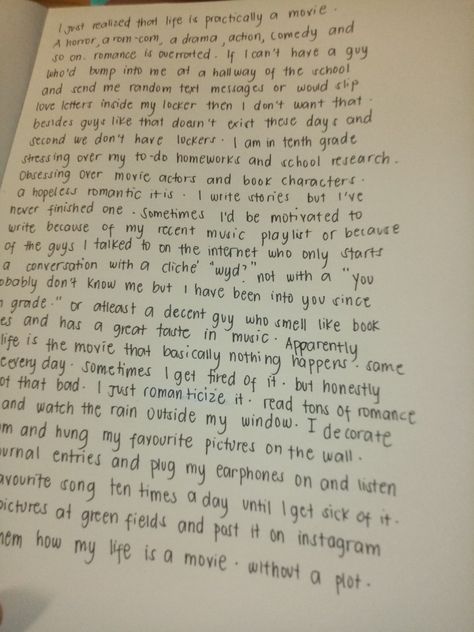 I just realized that life is practically a movie.
A horror, a rom-com, a drama, action, comedy and
so on. romance is overrated. If I can't have a guy
who'd bump into me at a hallway of the school
and send me random text messages or would slip
love letters inside my locker then I don't want that.
besides guys like that doesn't exist these days and
second we don't have lockers. I am in tenth grade
stressing over my to-do homeworks and school research.
Obsessing over movie actors and book characters.
a hopeless romantic it is. I write stories but I've
never finished one. Sometimes I'd be motivated to
write because of my recent music playlist or because
of the guys I talked to on the internet who only starts
a conversation with a cliché "wyd?" not with a "you
obably don't know me but I have been into you since
grade." or atleast a decent guy who smell like book
es and has a great taste in music. Apparently
life is the movie that basically nothing happens. same
everyday. sometimes I get tired of it. but honestly
ot that bad. I just romanticize it. read tons of romance
and watch the rain outside my window. I decorate
m and hung my favourite pictures on the wall.
urnal entries and plug my earphones on and listen
avourite song ten times a day until I get sick of it.
pictures at green fields and post it on instagram
hem how my life is a movie. without a plot.